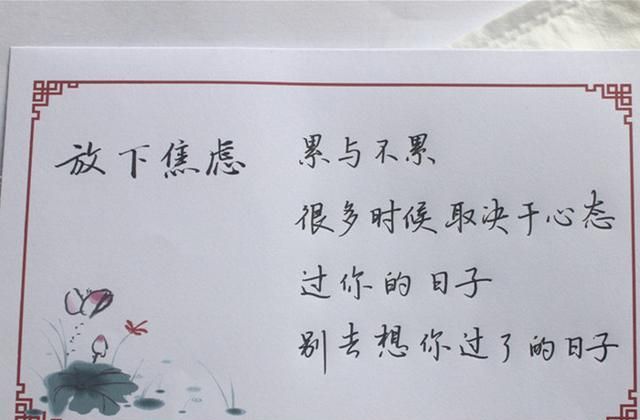 放下焦虑
累与不累
很多时候取决于心态
过你的日子
别去想你过了的日子